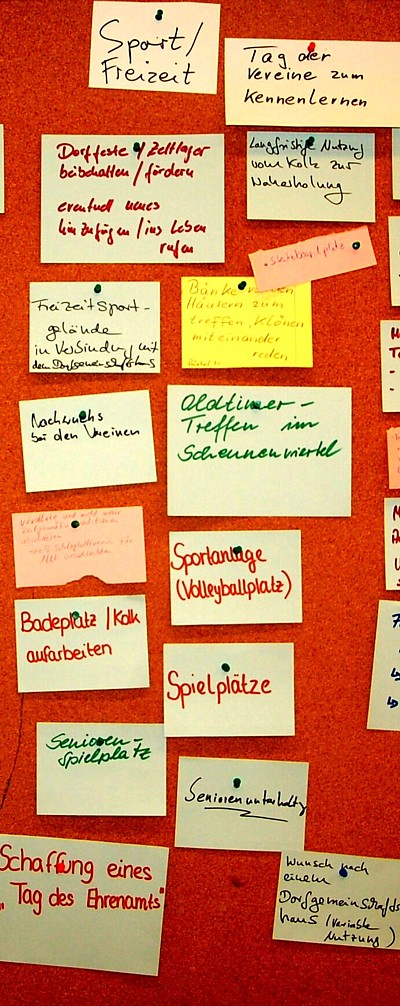 Sport/
Freizeit
Tag der
Vereine zum
Kennenlernen
Dorffeste / Zeltlager
beibehalten / fördern
eventuell neues
hinzufügen / ins Leben
rufen
Langfristige Nutzung
vom Kolk zur
Naherholung
Skateboardplatz
Freizeitsport-
gelände
in Verbindung mit
dem Dorfgemeinschaftshaus
Bänke vor den
Häusern zum
treffen, Klönen
miteinander
reden
Nachwuchs
bei den Vereinen
Oldtimer-
Treffen im
Scheunenviertel
veraltete und nicht mehr
zeitgemäße
Sportanlage
(Volleyballplatz)
Badeplatz / Kolk
aufarbeiten
Spielplätze
Senioren-
spielplatz
Seniorenunterhaltg
Schaffung eines
„Tag des Ehrenamts"
Wunsch nach
einem
Dorfgemeinschafts
haus (variable
Nutzung)